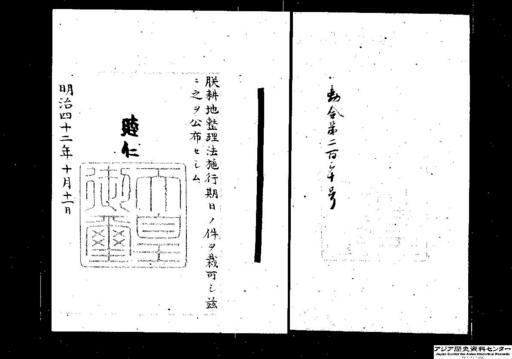 勅令第二百八十号
朕耕地整理法施行期日ノ件ヲ裁可シ玆
ニ之ヲ公布セシム
睦仁
天皇
御璽
明治四十二年十月十一日
アジア歴史資料センター
Japan Center for Asian Historical Records